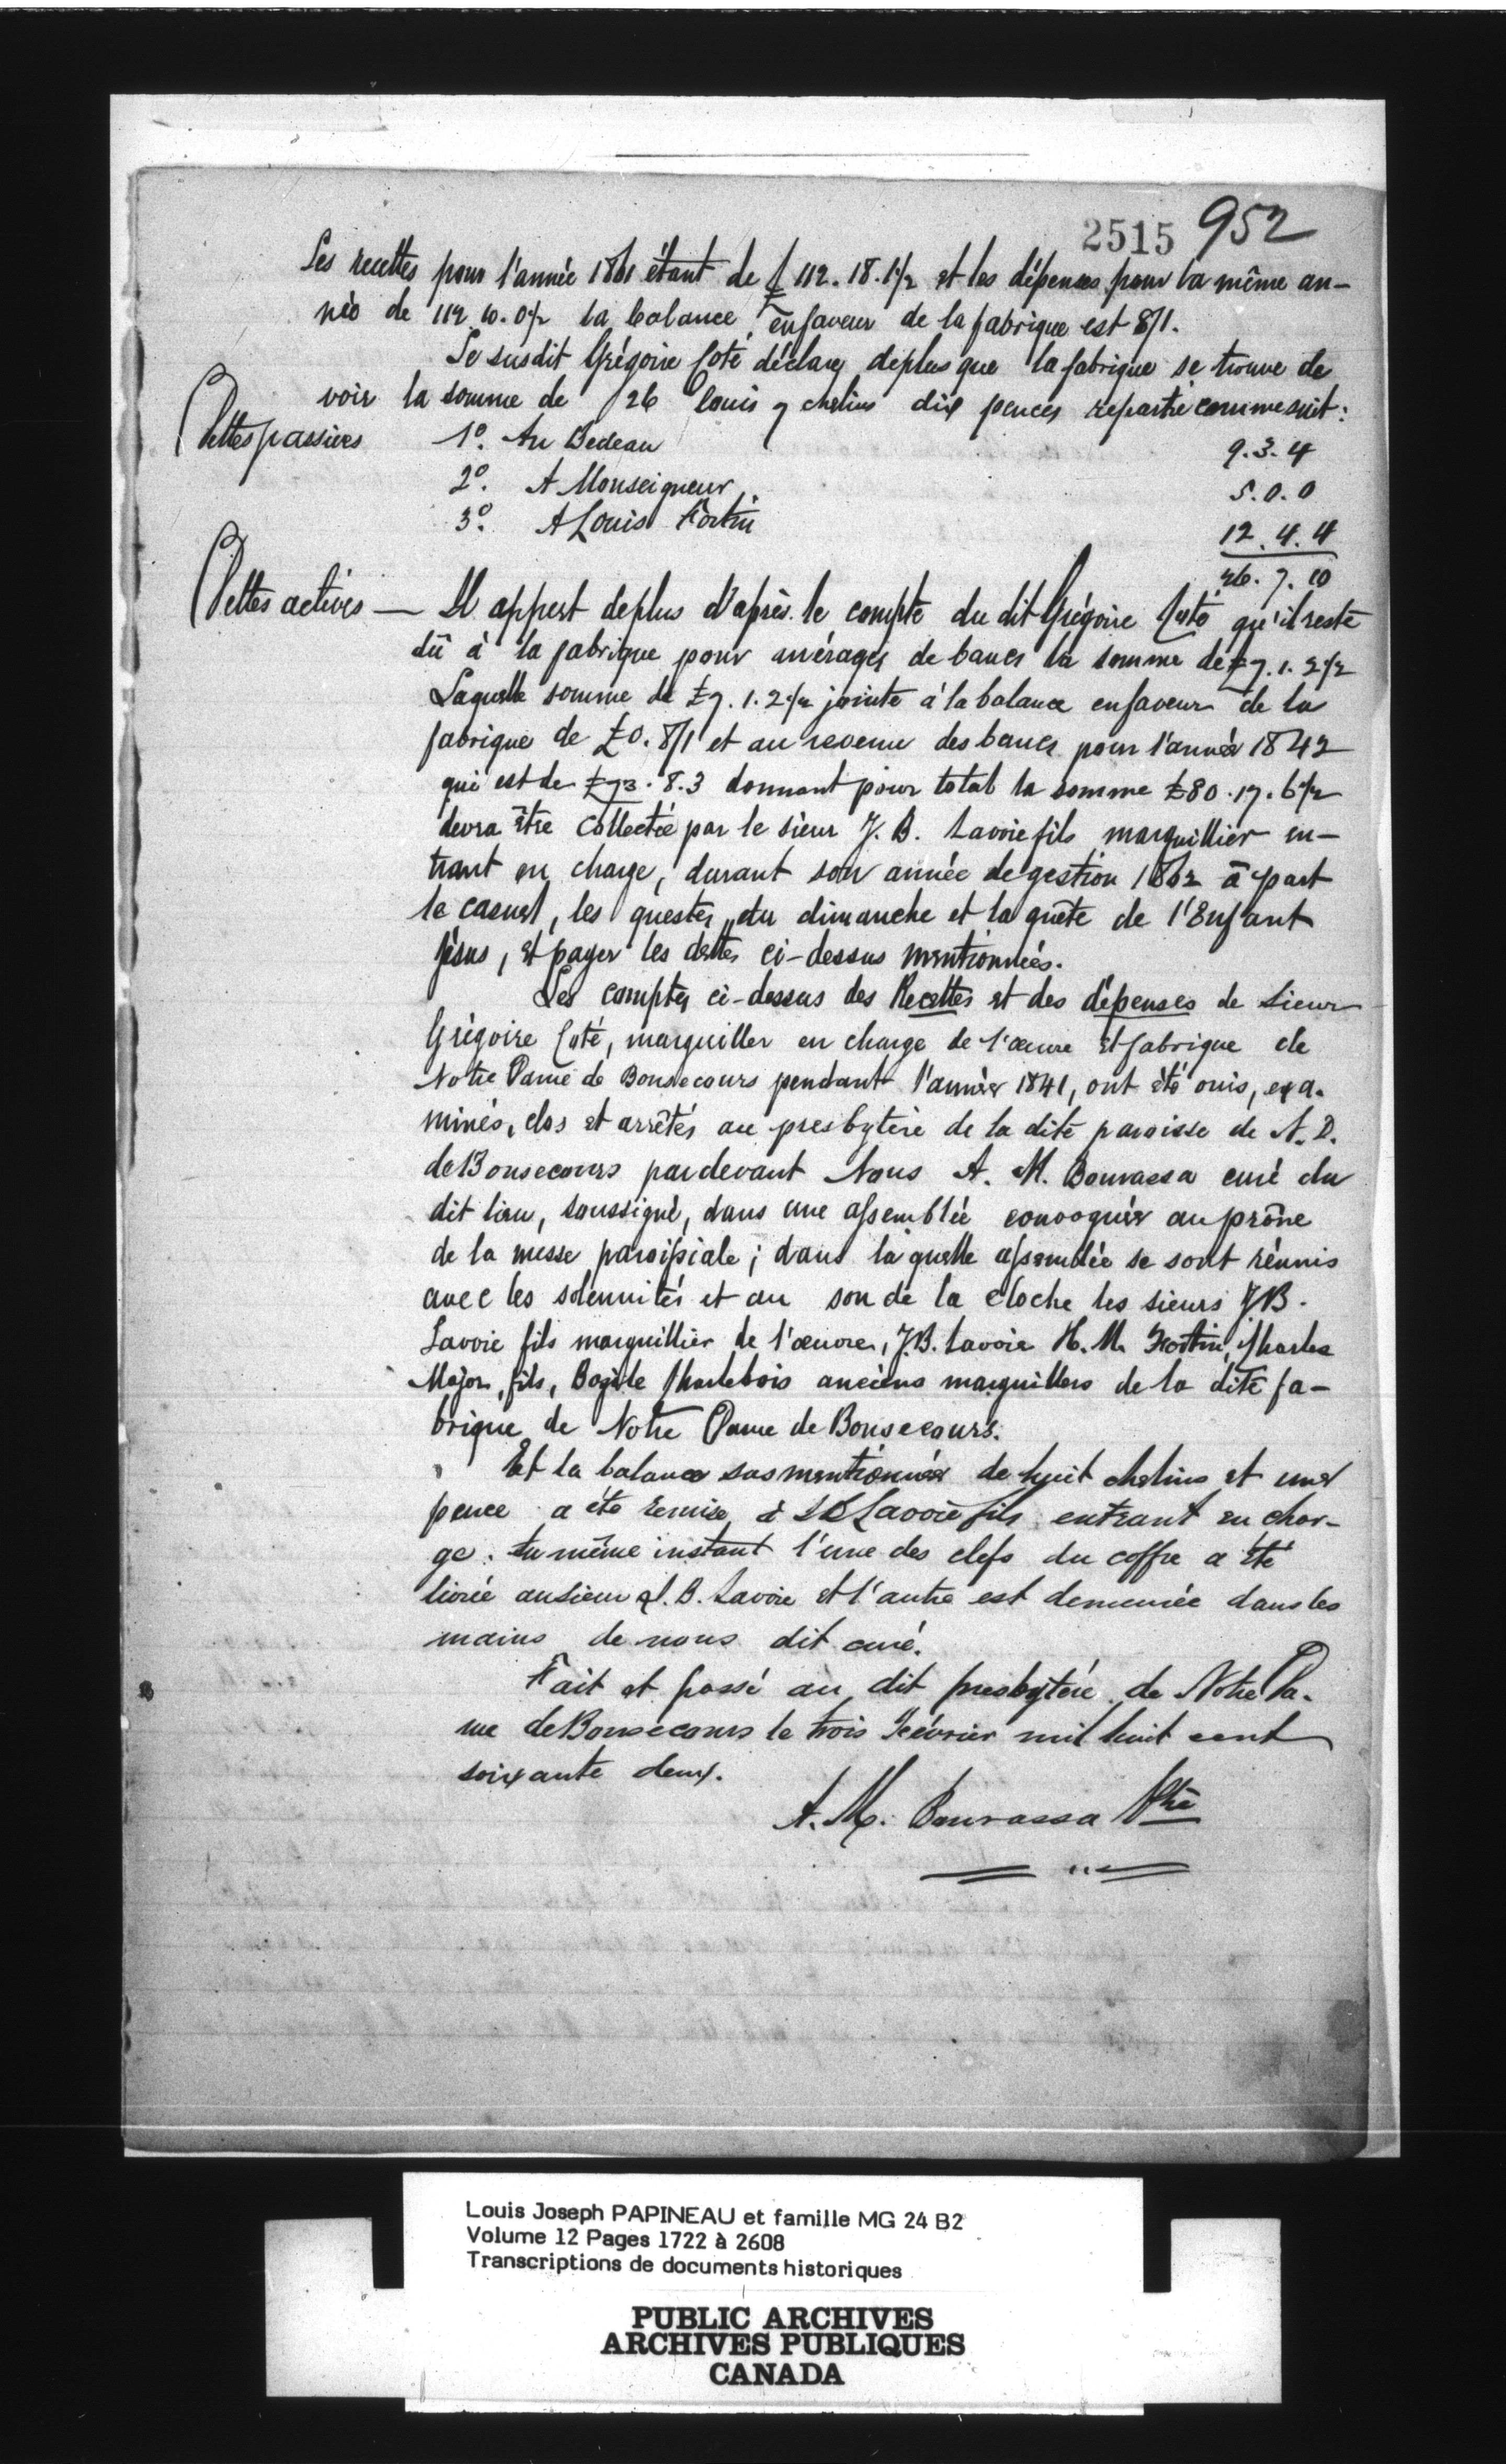 2515 952
Les recettes pour l'année 1861 étant de £ 112. 18. 1½ et les dépenses pour la même an-
née de 112 10. 0½ la balance enfaveur de la fabrique est 8/1.
Le susdit Grégoire Coté déclare deplus que la fabrique se trouve de
voir la somme de 26 louis 7 chelins dix pences repartie comme suit:
Dettes passives 1º. Au Bedeau 9. 3. 4
2º. A Monseigneur 5. 0. 0
3º. A Louis Fortin 12. 4. 4
26. 7. 10
Dettes actives — Il appert deplus d'après le compte du dit Grégoire Coté qu'il reste
dû à la fabrique pour arrérages de bancs la somme de £7. 1. 2½
Laquelle somme de £7. 1. 2½ jointe à la balance enfaveur de la
fabrique de £0. 8/1 et au revenu des bancs pour l'année 1842
qui est de £73. 8. 3 donnant pour total la somme £80. 17. 6½
devra être collectée par le sieur J. B. Lavoie fils marguillier en-
trant en charge, durant son année de gestion 1862 à part
le casuel, les questes du dimanche et la quête de l'Enfant
Jésus, et payer les dettes ci-dessus mentionnées.
Les comptes ci-dessus des Recettes et des dépenses de Sieur
Grégoire Coté, marguiller en charge de l'œuvre et fabrique de
Notre Dame de Bonsecours pendant l'année 1841, ont été ouis, exa-
minés, clos et arrêtés au presbytère de la dite paroisse de N. D.
de Bonsecours pardevant Nous A. M. Bourassa curé du
dit lieu, soussigné, dans une assemblée convoquée au prône
de la messe paroissiale; dans laquelle assemblée se sont réunis
avec les solennités et au son de la cloche les sieurs JB.
Lavoie fils marguillier de l'œuvre, J.B. Lavoie H. M. Fortin, Charles
Major, fils, Bazile Charlebois anciens marguillers de la dite fa-
brique de Notre Dame de Bonsecours.
Et la balance susmentionnée de huit chelins et une
pence a été remise à Lavoie fils entrant en char-
ge. Au même instant l'une des clefs du coffre a été
livrée au sieur J. B. Lavoie et l'autre est demeurée dans les
mains de nous dit curé.
Fait et passé au dit presbytère de Notre Da-
me de Bonsecours le trois Février mil huit cent
soixante deux.
A. M. Bourassa Ptre
Louis Joseph PAPINEAU et famille MG 24 B2
Volume 12 Pages 1722 à 2608
Transcriptions de documents historiques
PUBLIC ARCHIVES
ARCHIVES PUBLIQUES
CANADA